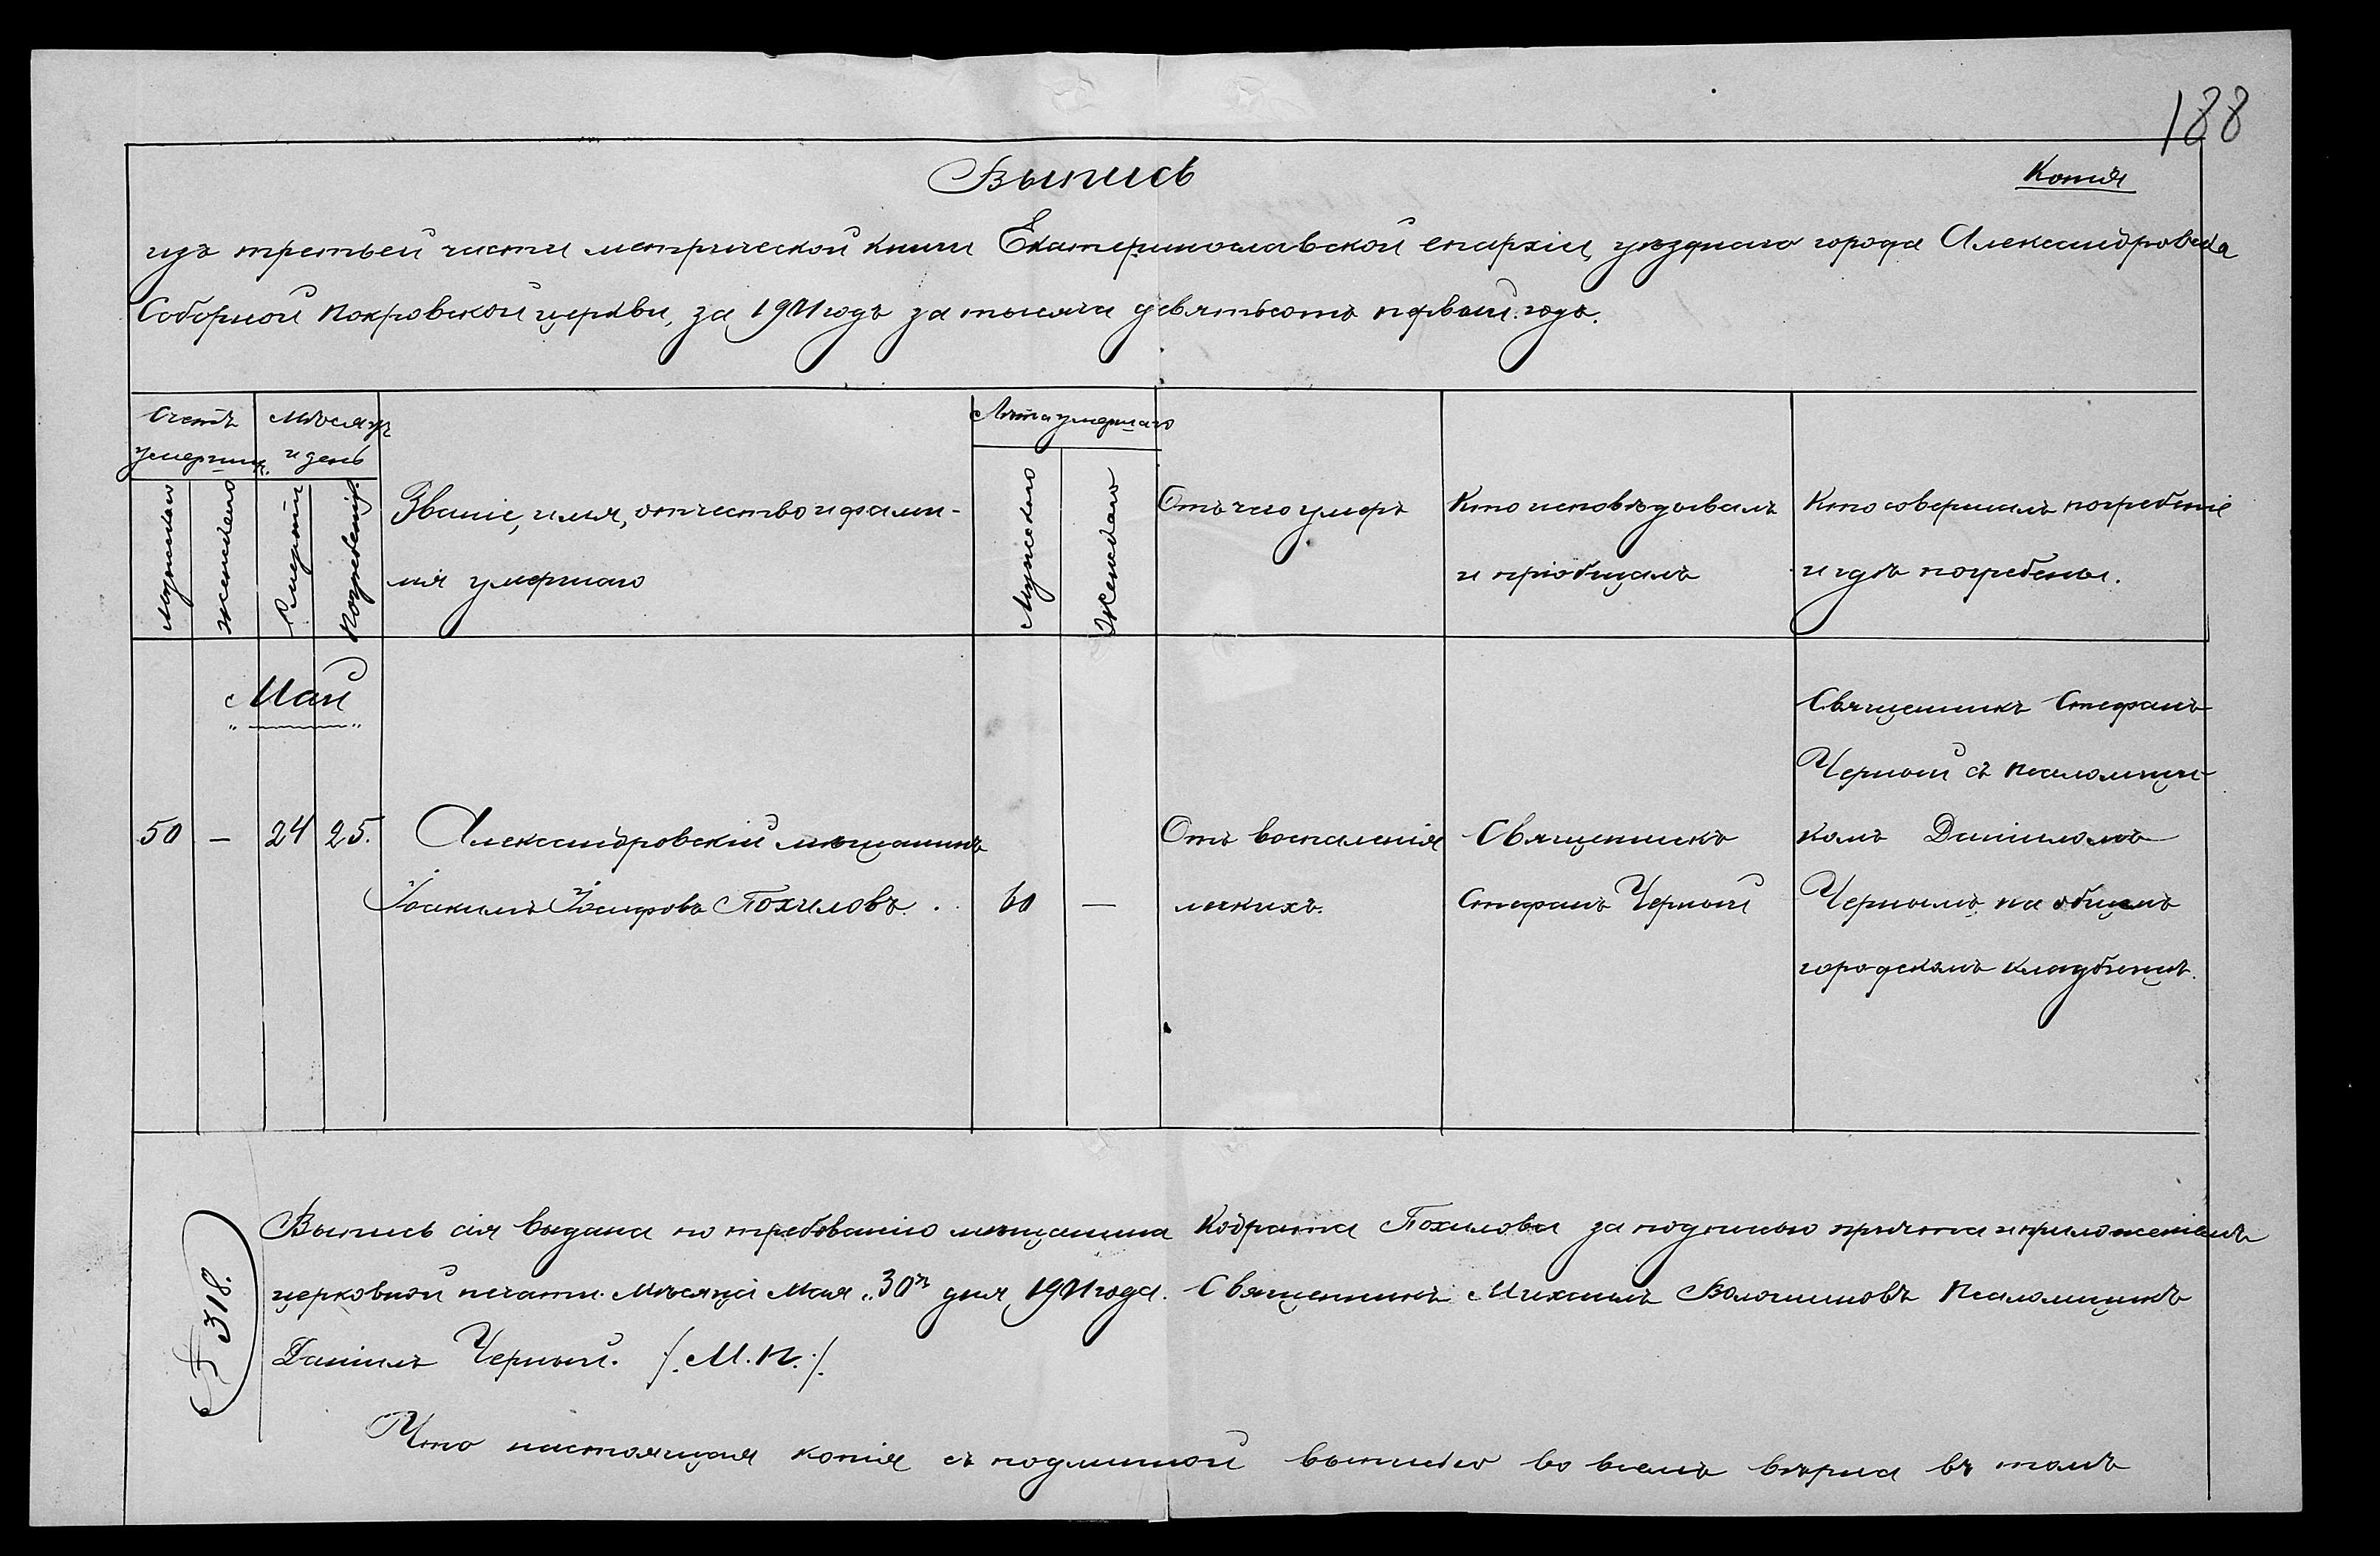 188
Выпись
Копія
изъ третьей части метрической книги Екатеринославской епархіи, уѣзднаго города Александровска
Соборной Покровской церкви, за 1901 годъ за тысяча девятьсотъ первый годъ.
Счетъ умершихъ.
Мѣсяцъ и день
Лѣта умершаго
Мужеско
Женско
Смерти
Погребенія
Званіе, имя, отчество и фами-
лія умершаго
Мужеско
Женско
Отъ чего умеръ
Кто исповѣдывалъ
и пріобщалъ
Кто совершалъ погребеніе
и гдѣ погребены.
Май
50
—
24
25.
Александровскій мѣщанинъ
Іоакимъ Іосифовъ Похиловъ
60
—
Отъ воспаленія
легкихъ.
Священникъ
Стефанъ Черный
Священникъ Стефанъ
Черный съ псаломщи-
комъ Даніиломъ
Чернымъ на общемъ
городскомъ кладбищѣ.
№ 318.
Выпись сія выдана по требованію мѣщанина Кодрата Похилова за подписью причта и приложеніемъ
церковной печати. Мѣсяца Мая „30" дня 1901 года. Священникъ Михаилъ Волошиновъ Псаломщикъ
Даніилъ Черный. /М.П./
Что настоящая копія съ подлинной выписью во всемъ вѣрна въ томъ